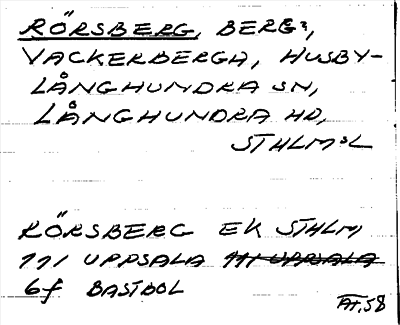 RÖRSBERG, BERG?,
VACKERBERGA, HUSBY-
LÅNGHUNDRA SN,
LÅNGHUNDRA HD,
STHLM:L
RÖRSBERG EK STHLM
111 UPPSALA 111 UPPSALA
6f BASTBOL
58